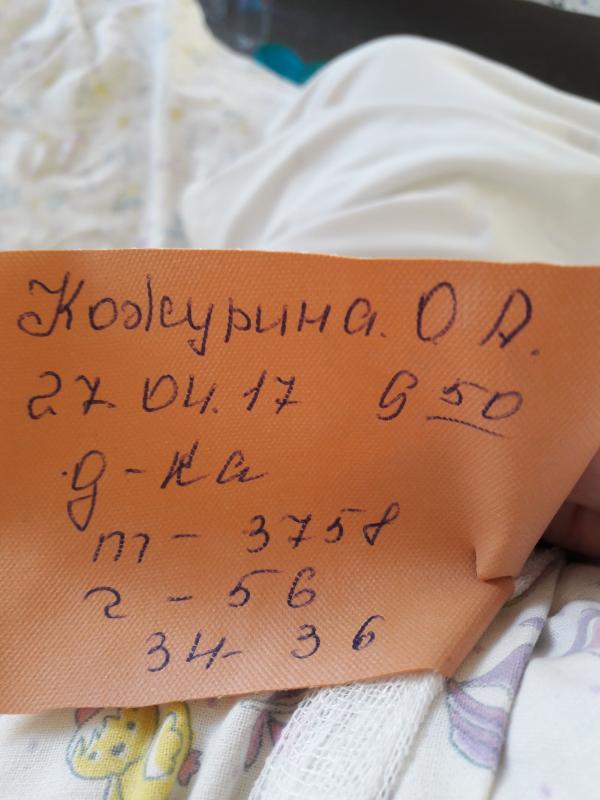 Кожурина. О А.
27.04.17 9 50
д-ка
m - 3758
г - 56
34 - 36